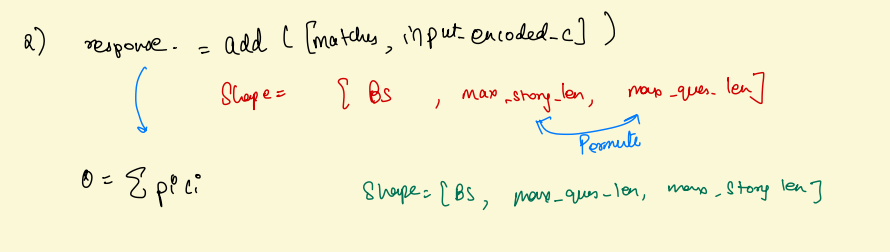 2) response. = add ( [matches, input_encoded_c] )
Shape = [ BS , max_story_len, max_ques_len]
Permute
O = Σ pi ci
Shape = [BS, max_ques_len, max_story len]